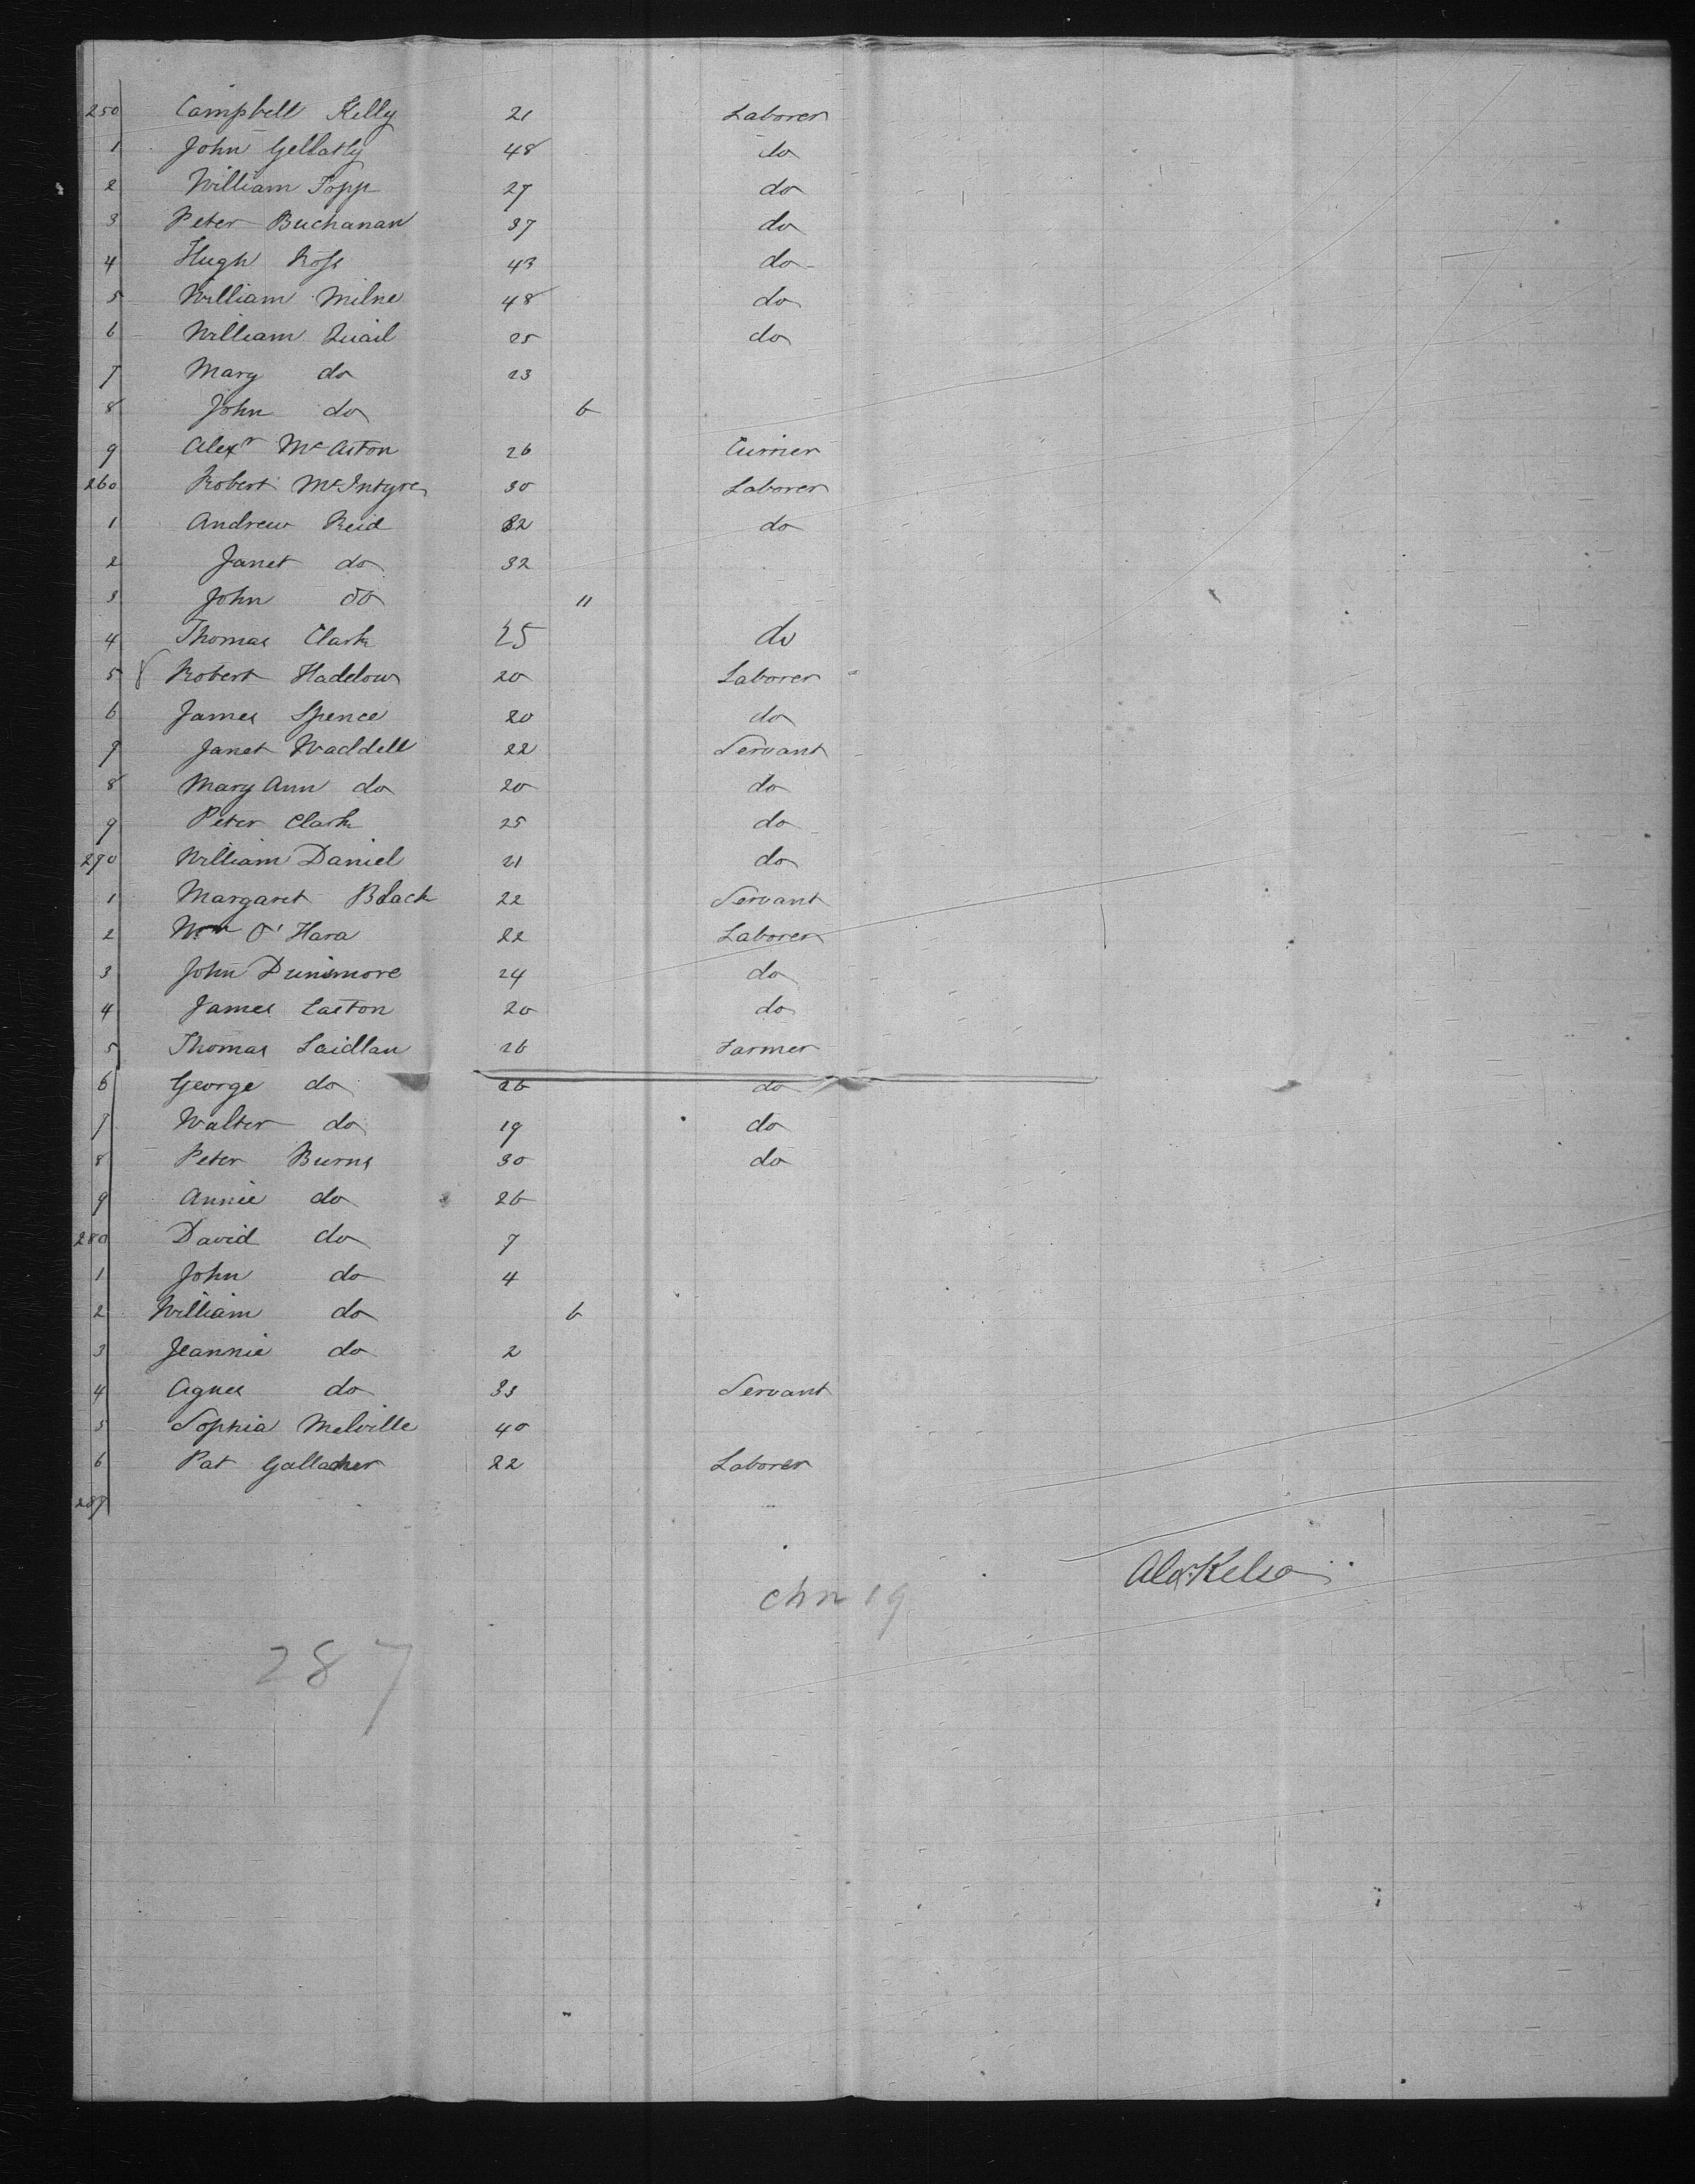 250 Campbell Kelly 21 Laborer
1 John Gellatly 48 do
2 William Topp 27 do
3 Peter Buchanan 37 do
4 Hugh Ross 43 do
5 William Milne 48 do
6 William Quail 25 do
7 Mary do 23
8 John do 6
9 Alexr McAston 26 Currier
260 Robert McIntyre 30 Laborer
1 Andrew Reid 32 do
2 Janet do 32
3 John do 11
4 Thomas Clark 25 do
5 Robert Hadelow 20 Laborer
6 James Spence 20 do
7 Janet Waddell 22 Servant
8 Mary Ann do 20 do
9 Peter Clark 25 do
270 William Daniel 21 do
1 Margaret Black 22 Servant
2 Wm O'Hara 22 Laborer
3 John Dunsmore 24 do
4 James Easton 20 do
5 Thomas Laidlaw 26 Farmer
6 George do 26 do
7 Walter do 19 do
8 Peter Burns 30 do
9 Annie do 26
280 David do 7
1 John do 4
2 William do 6
3 Jeannie do 2
4 Agnes do 33 Servant
5 Sophia Melville 40
6 Pat Gallacher 22 Laborer
287
Alex Kelso
chn 19
287